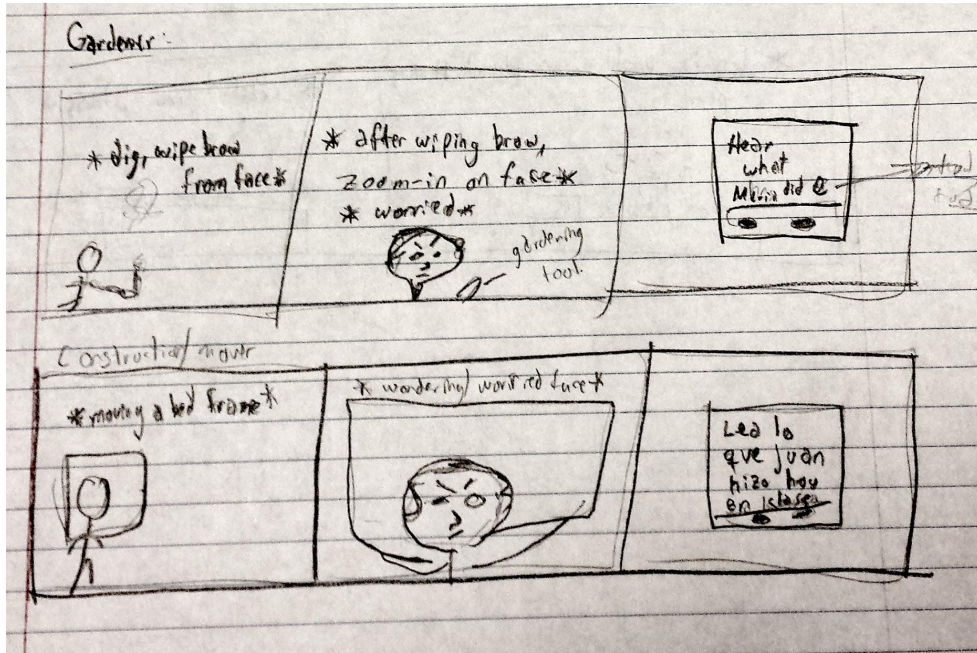 Gardener:
* dig, wipe brow
from face *
* after wiping brow,
zoom-in on face *
* worried *
gardening
tool
Hear
what
Maria did @
Construction/mover
*moving a bed frame*
*wondering/worried face*
Lea lo
que Juan
hizo hoy
en klase